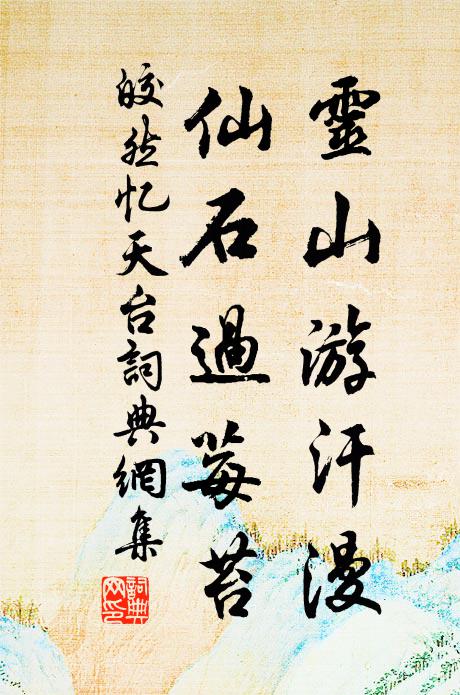 靈山游汗漫
仙石過莓苔
皎然忆天台詞典網集
詞典